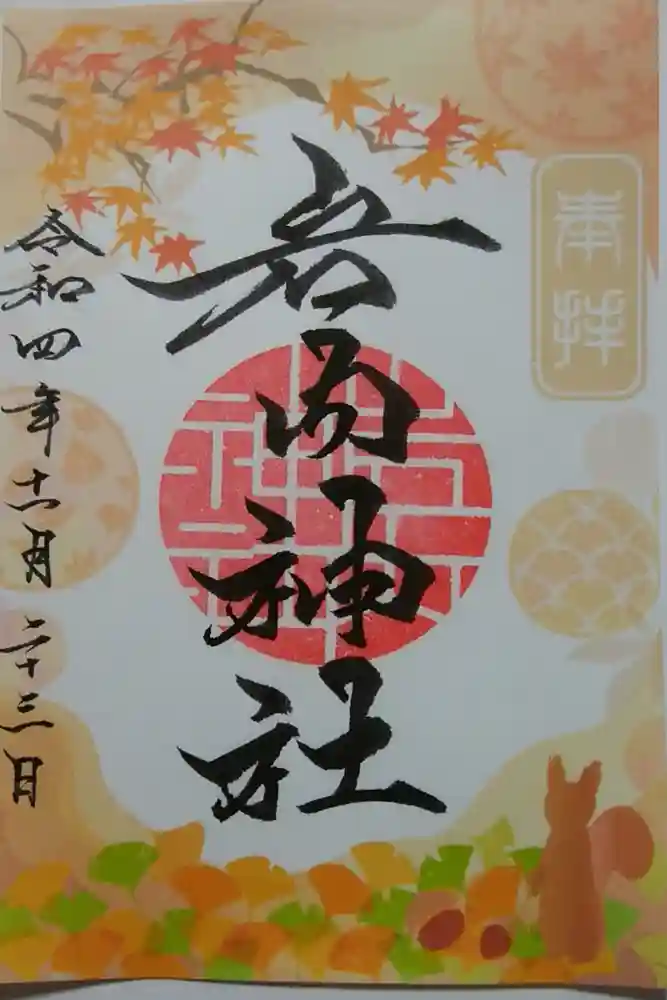 奉拝
神社
令和四年十一月二十三日